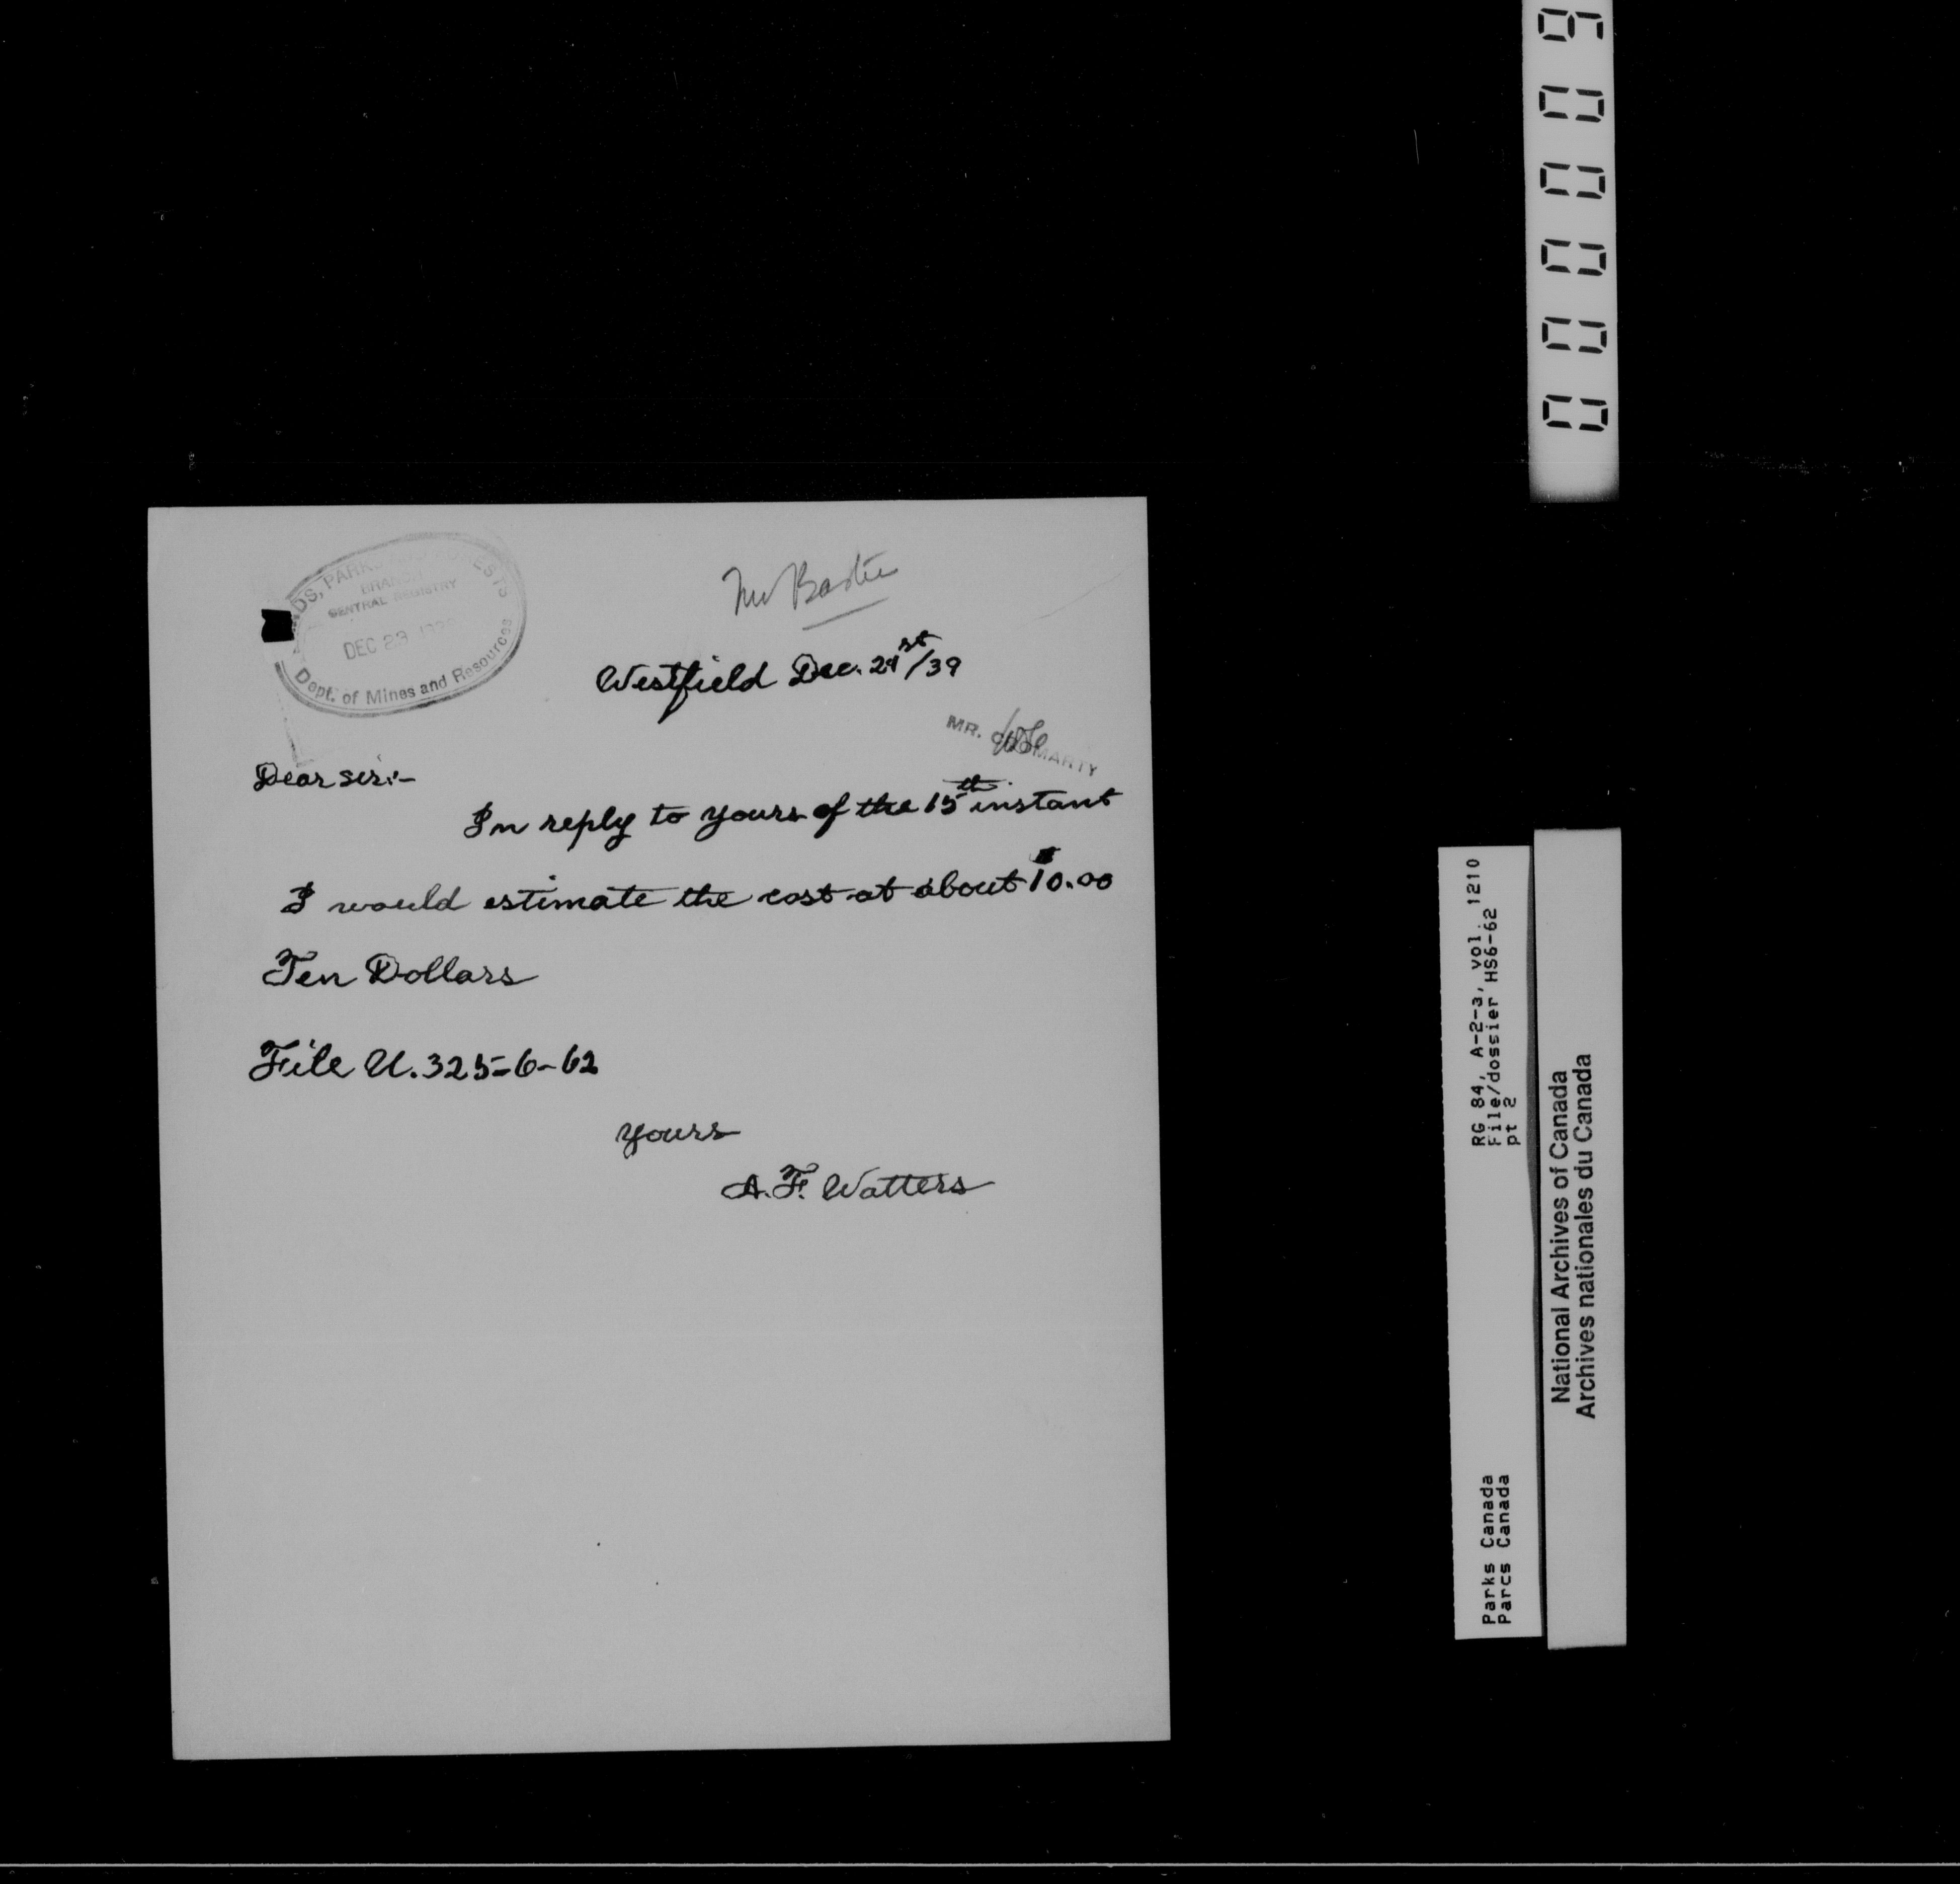 Mr Bastie
LANDS, PARKS AND FORESTS
BRANCH
CENTRAL REGISTRY
DEC 23 1939
Dept. of Mines and Resources
Westfield Dec. 21st/39
MR. CROMARTY
Dear sir:-
In reply to yours of the 15th instant
I would estimate the cost at about $10.00
Ten Dollars
File U.325-6-62
Yours
A.F. Watters
RG 84, A-2-3, vol. 1210
File/dossier HS6-62
pt 2
Parks Canada
Parcs Canada
National Archives of Canada
Archives nationales du Canada